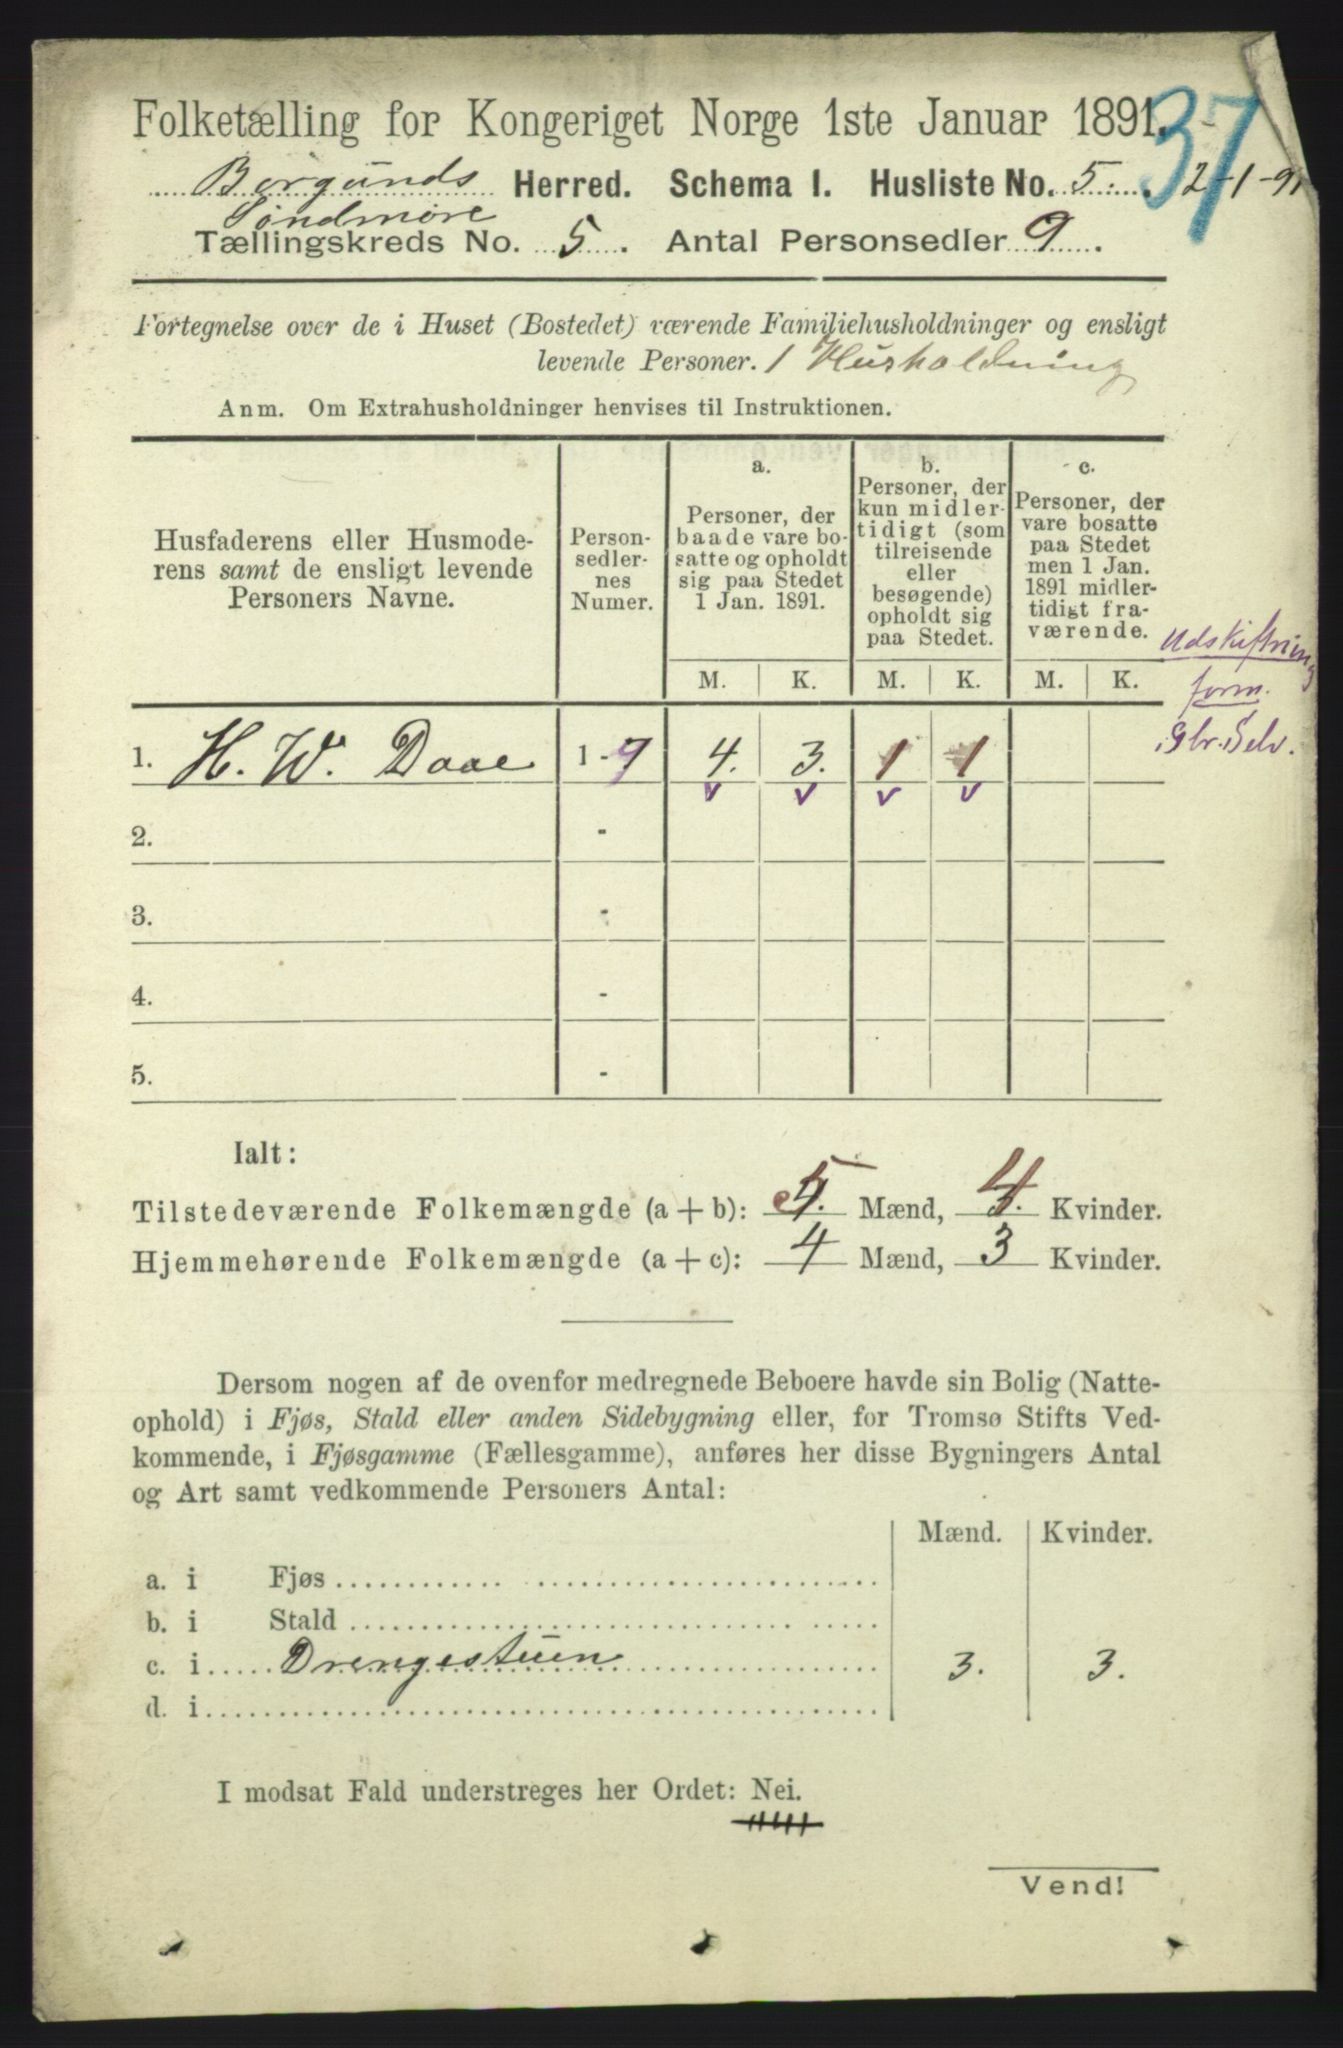 Folketælling for Kongeriget Norge 1ste Januar 1891.
37
Borgunds Herred. Schema I. Husliste No. 5. 2-1-91
Søndmøre
Tællingskreds No. 5. Antal Personsedler 9.
Fortegnelse over de i Huset (Bostedet) værende Familiehusholdninger og ensligt
levende Personer. 1 Husholdning
Anm. Om Extrahusholdninger henvises til Instruktionen.
Husfaderens eller Husmode-
rens samt de ensligt levende
Personers Navne.
Person-
sedler-
nes
Numer.
a.
Personer, der
baade vare bo-
satte og opholdt
sig paa Stedet
1 Jan. 1891.
b.
Personer, der
kun midler-
tidigt (som
tilreisende
eller
besøgende)
opholdt sig
paa Stedet.
c.
Personer, der
vare bosatte
paa Stedet
men 1 Jan.
1891 midler-
tidigt fra-
værende.
M. K. M. K. M. K.
Udskiftning
form.
Slv.
1. H. W. Daae 1-9 4. 3. 1 1
v v v v
2. -
3. -
4. -
5. -
Ialt:
Tilstedeværende Folkemængde (a + b): 5. Mænd, 4. Kvinder.
Hjemmehørende Folkemængde (a + c): 4 Mænd, 3 Kvinder.
Dersom nogen af de ovenfor medregnede Beboere havde sin Bolig (Natte-
ophold) i Fjøs, Stald eller anden Sidebygning eller, for Tromsø Stifts Ved-
kommende, i Fjøsgamme (Fællesgamme), anføres her disse Bygningers Antal
og Art samt vedkommende Personers Antal:
Mænd. Kvinder.
a. i Fjøs
b. i Stald
c. i Drengestuen 3. 3.
d. i
I modsat Fald understreges her Ordet: Nei.
Vend!